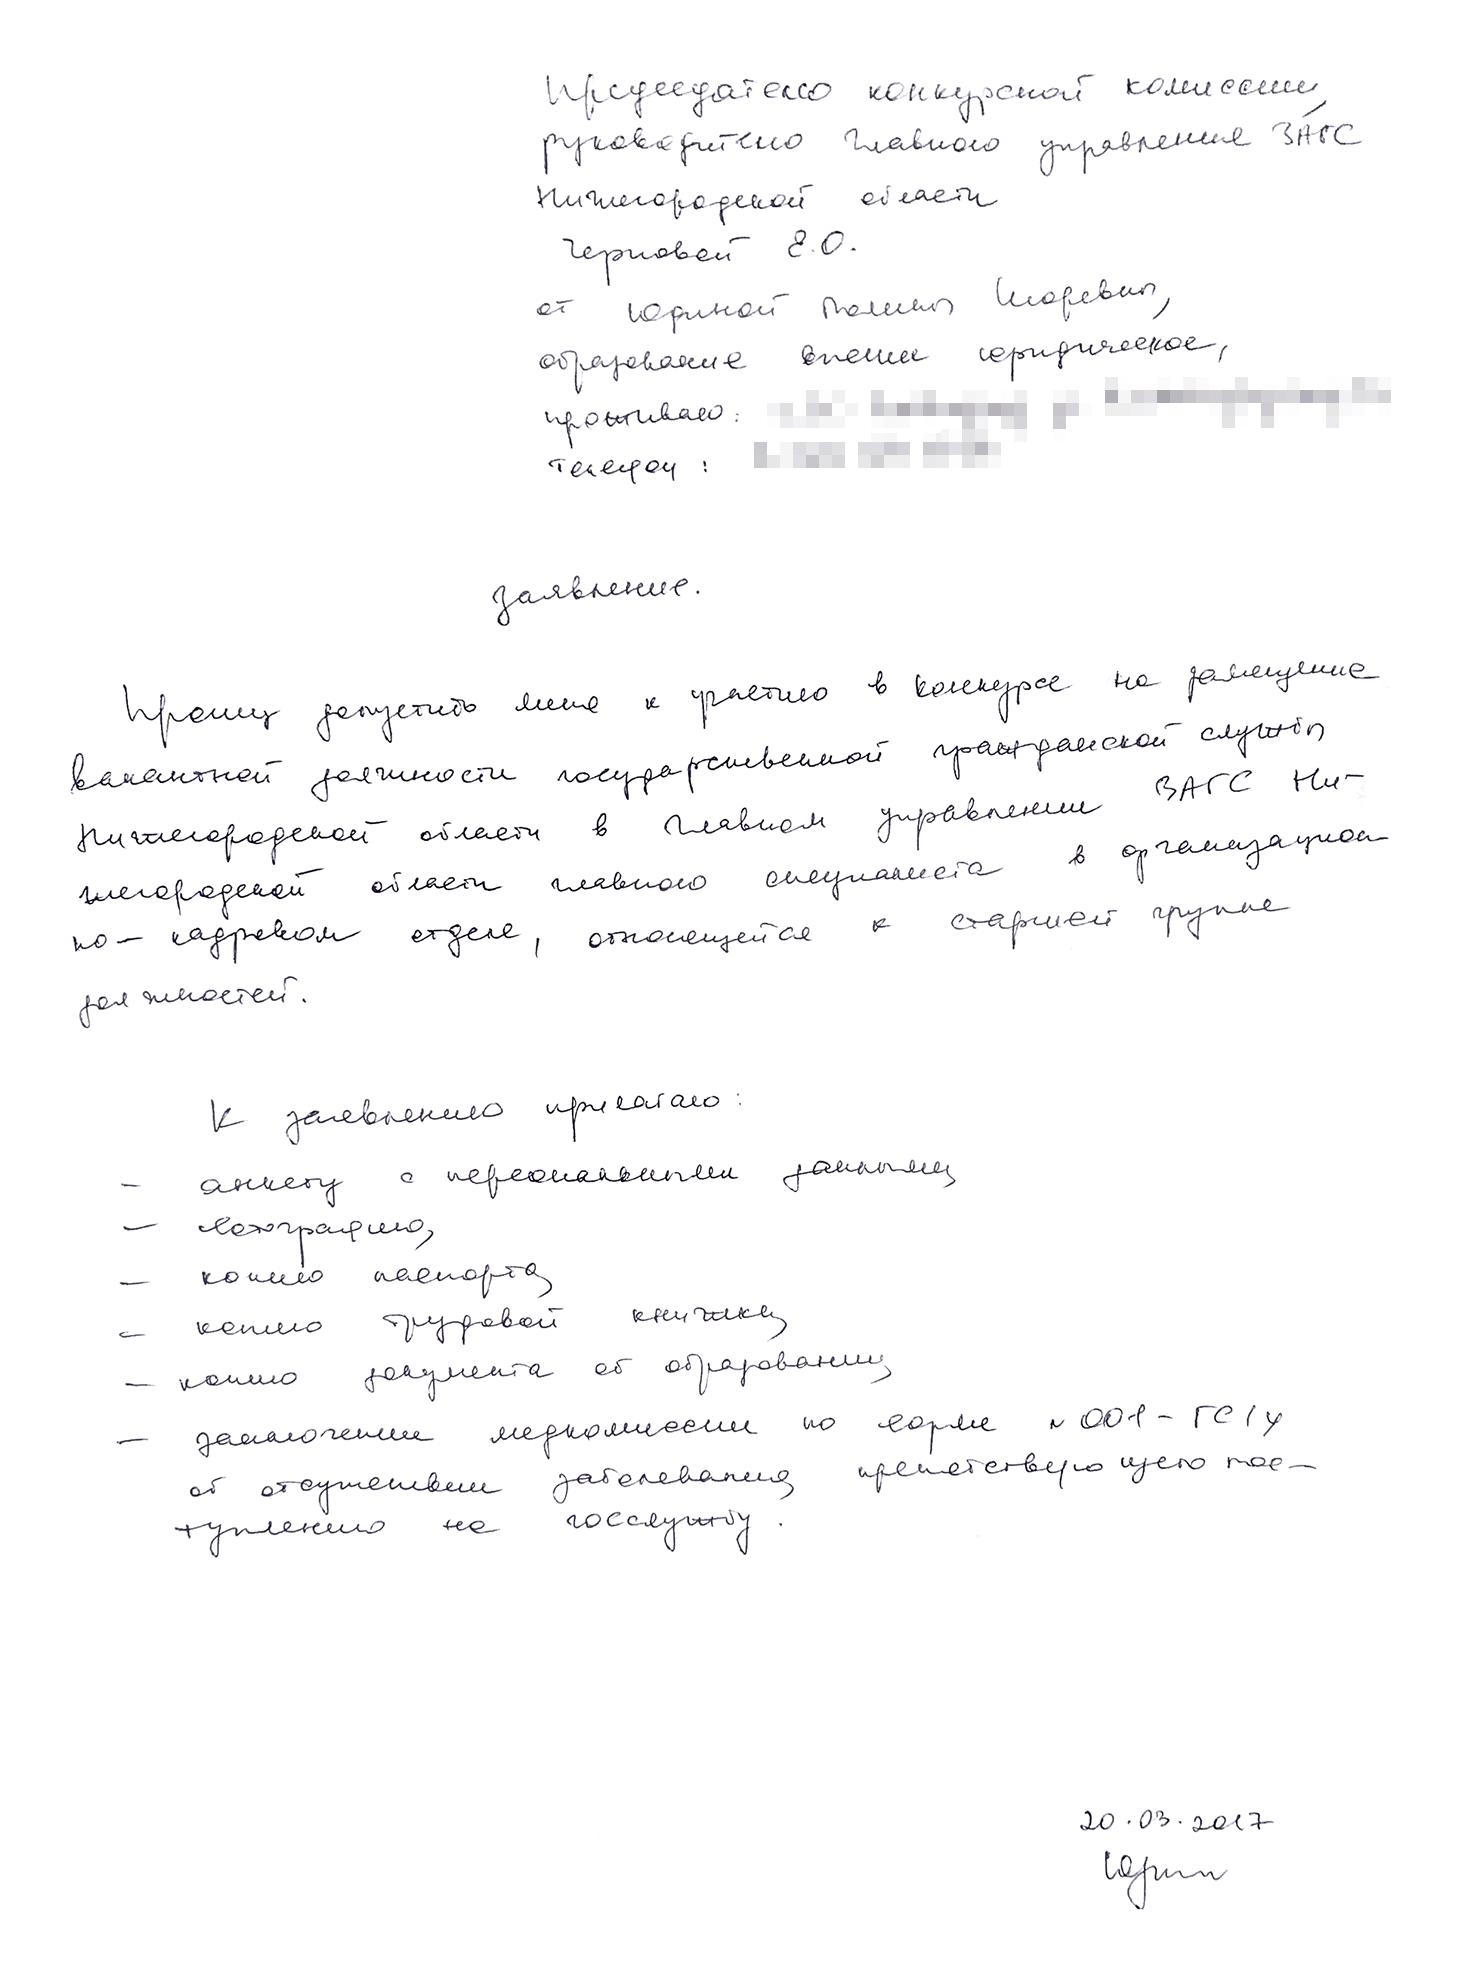 Председателю конкурсной комиссии,
руководителю Главного управления ЗАГС
Нижегородской области
Черновой Е.О.
от Юдиной Полины Игоревны,
образование высшее юридическое,
проживаю:
телефон:
Заявление.
Прошу допустить меня к участию в конкурсе на замещение
вакантной должности государственной гражданской службы
Нижегородской области в Главном управлении ЗАГС Ни-
жегородской области главного специалиста в организацион
но-кадровом отделе, относящейся к старшей группе
должностей.
К заявлению прилагаю:
- анкету с персональными данными,
- фотографию,
- копию паспорта,
- копию трудовой книжки,
- копию документа об образовании,
- заключении медкомиссии по форме №001-ГС/у
об отсутствии заболевания, препятствующего пос-
туплению на госслужбу.
20.03.2017